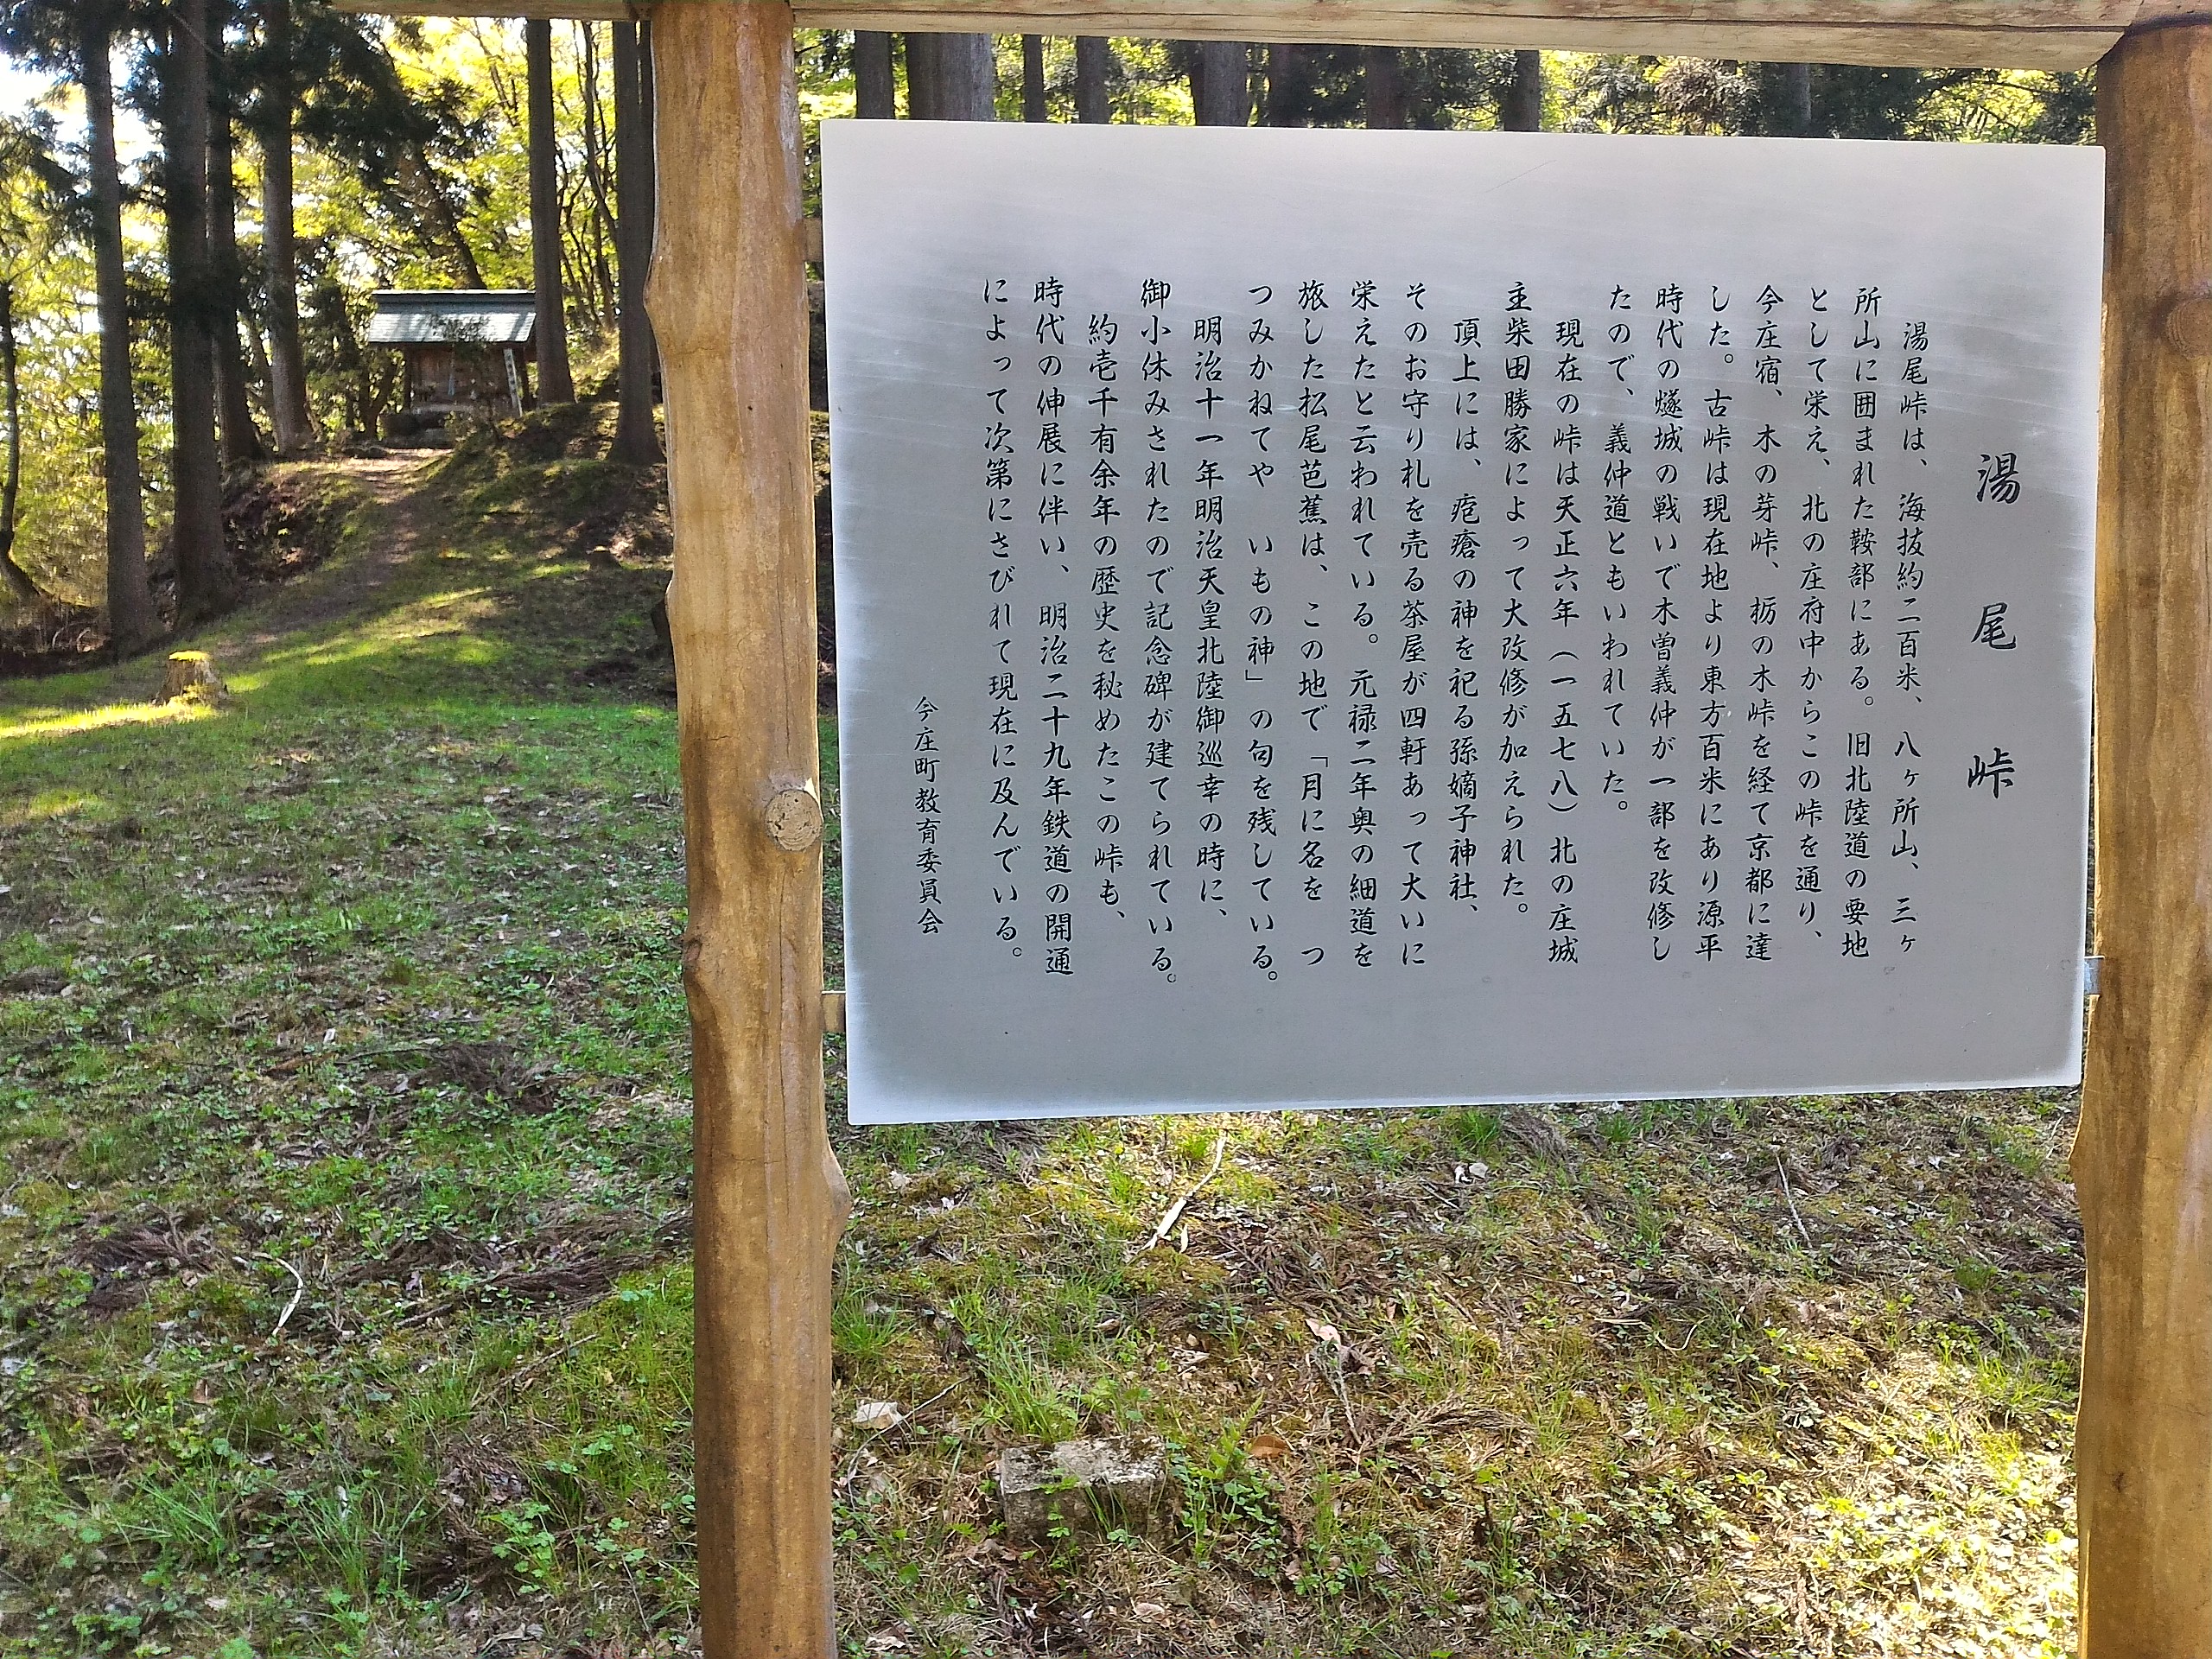 湯尾峠
湯尾峠は、海抜約二百米、八ヶ所山、三ヶ
所山に囲まれた鞍部にある。旧北陸道の要地
として栄え、北の庄府中からこの峠を通り、
今庄宿、木の芽峠、栃の木峠を経て京都に達
した。古峠は現在地より東方百米にあり源平
時代の燧城の戦いで木曽義仲が一部を改修し
たので、義仲道ともいわれていた。
現在の峠は天正六年（一五七八）北の庄城
主柴田勝家によって大改修が加えられた。
頂上には、疱瘡の神を祀る孫嫡子神社、
そのお守り札を売る茶屋が四軒あって大いに
栄えたと云われている。元禄二年奥の細道を
旅した松尾芭蕉は、この地で「月に名を　つ
つみかねてや　いもの神」の句を残している。
明治十一年明治天皇北陸御巡幸の時に、
御小休みされたので記念碑が建てられている。
約壱千有余年の歴史を秘めたこの峠も、
時代の伸展に伴い、明治二十九年鉄道の開通
によって次第にさびれて現在に及んでいる。
今庄町教育委員会